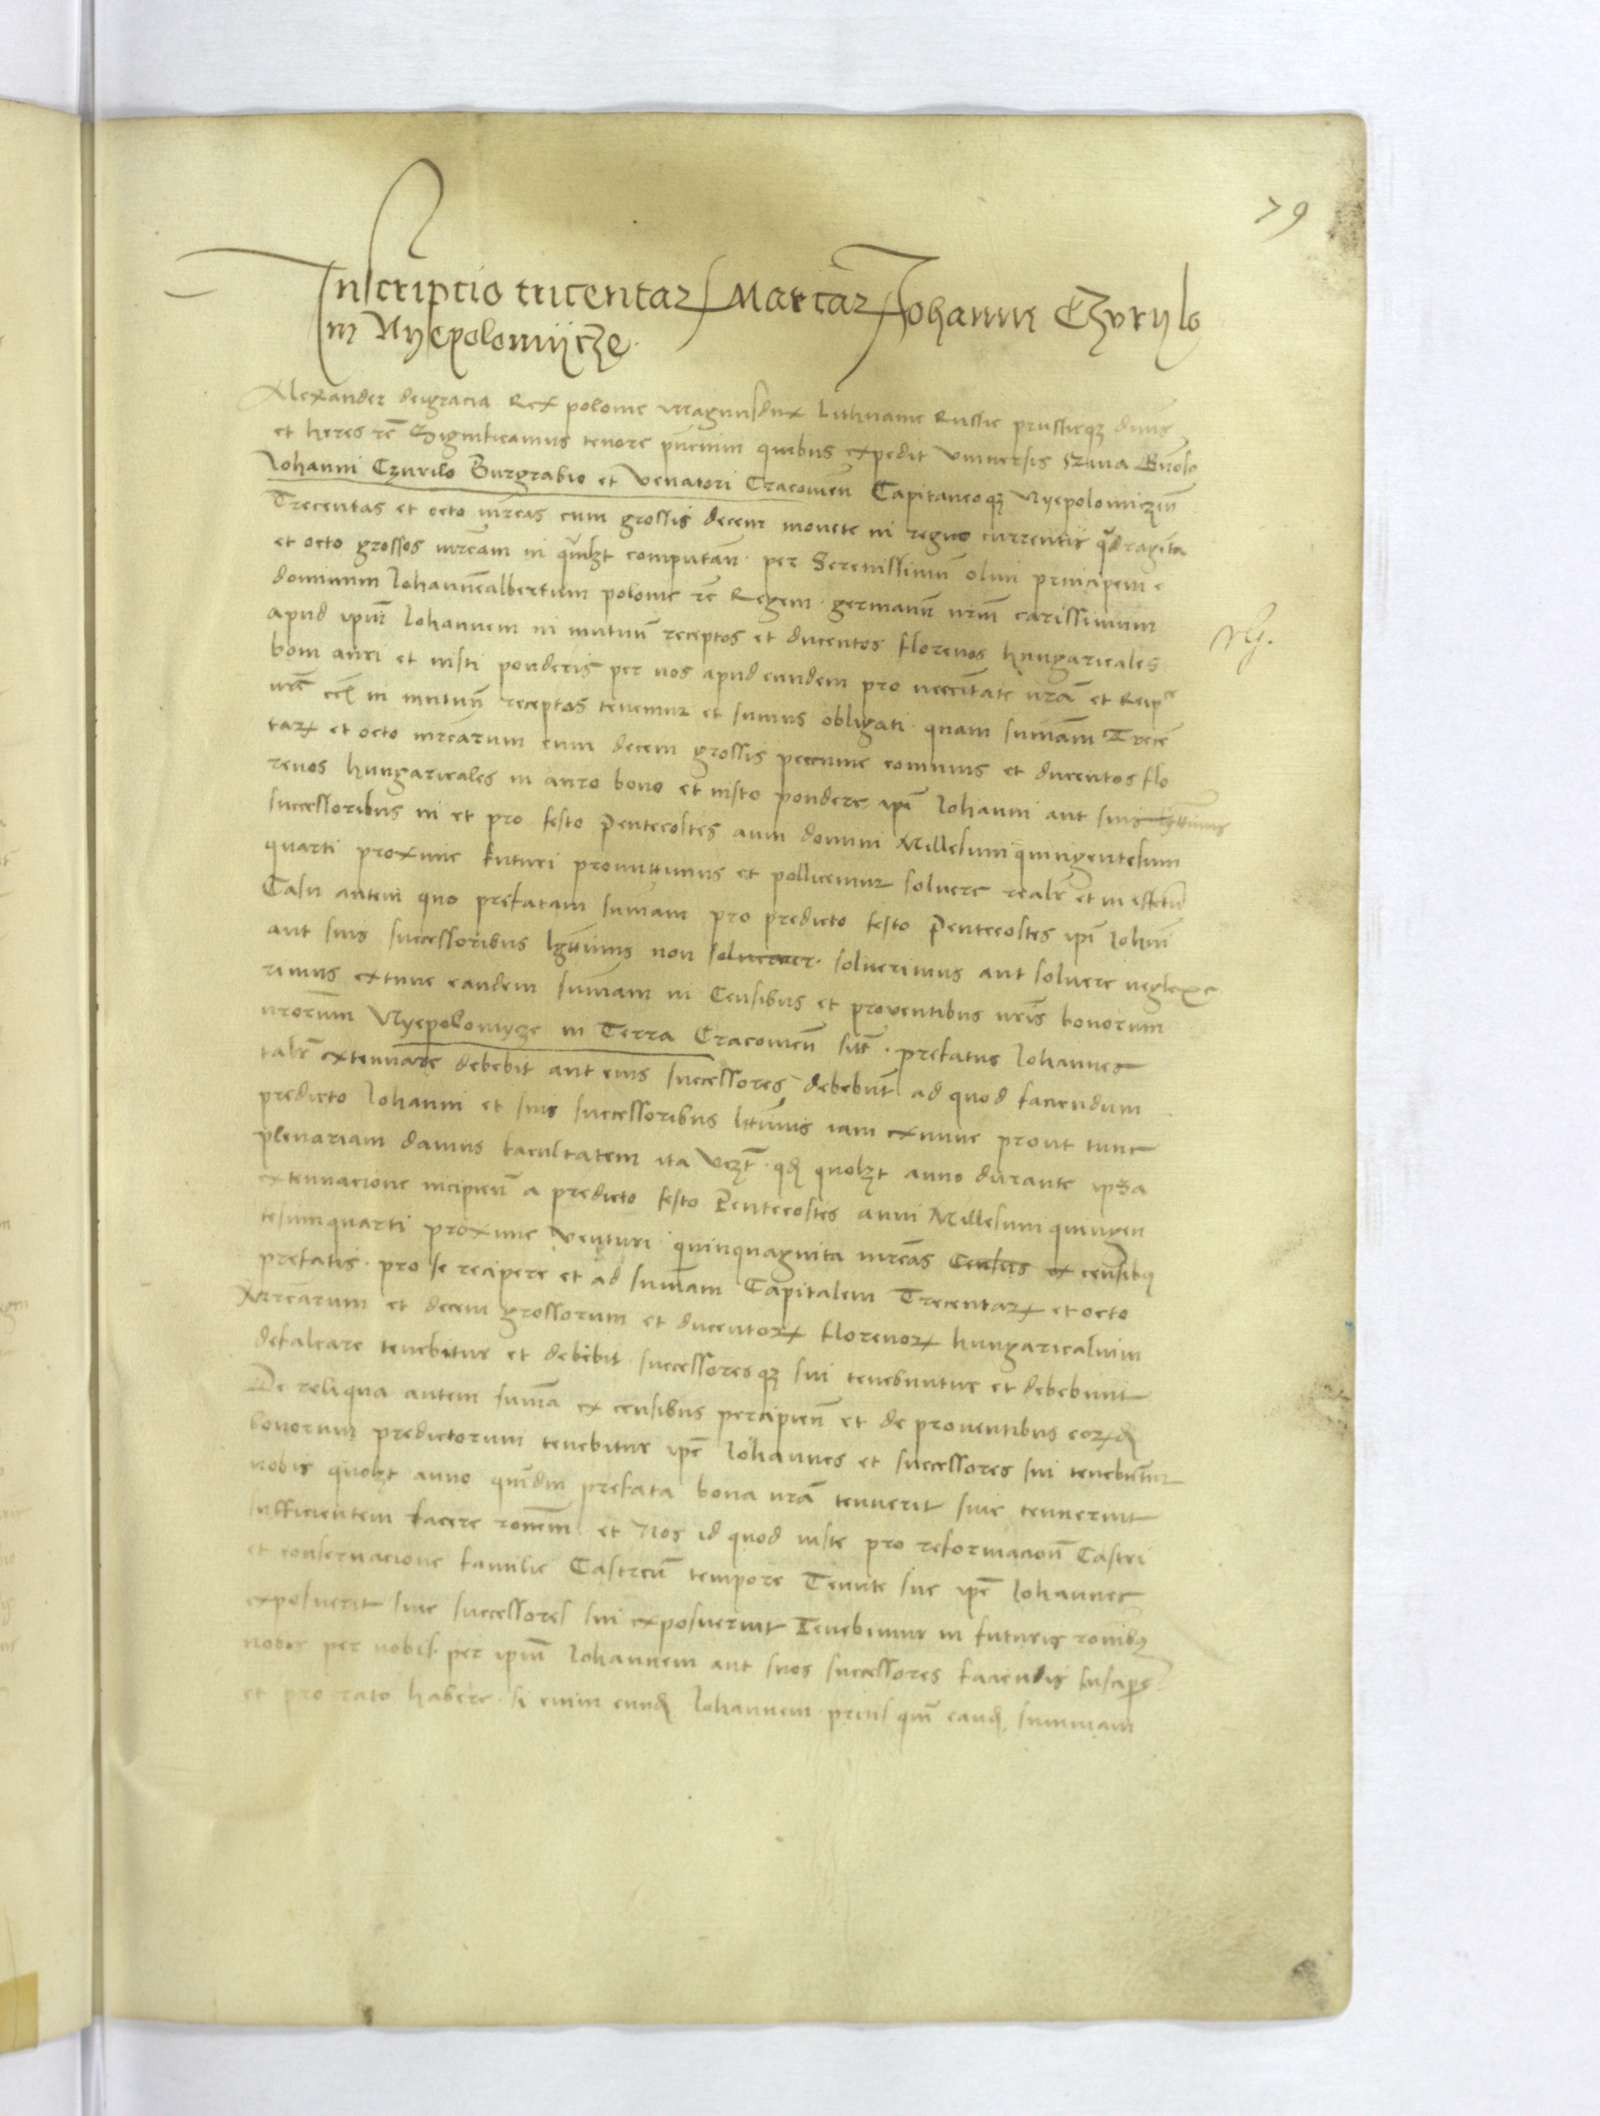 79
Inscriptio tricentar Marcar Johanni Czurylo
in Nyepolomijcze.
Alexander deigracia Rex polonie Magnusdux Lithuanie Russie prussieqz dnus
et heres rc Significamus tenore pntium quibus expedit vniuersis
Johanni Czurilo Burgrabio et Venatori Cracouien Capitaneoqz Nyepolomiczen
Trecentas et octo mrcas cum grossis decem monete in regno currentis qdraginta
et octo grossos mrcam in qmlzt computan per Serenissimu olim principem
dominum Johannealbertum polonie rc Regem germanu nrm carissimum
apud ipm Johannem in mutuu receptos et ducentos florenos hungaricales
boni auri et iusti ponderis per nos apud eundem pro necessitate nra et Reip
nre in mutuu receptos tenemur et sumus obligati quam sumam Trecen
tar et octo mrcarum cum decem grossis pecunie comunis et ducentos flo
renos hungaricales in auro bono et iusto pondere ipi Johanni aut suis
successoribus in et pro festo Pentecostes anni domini Millesimi quingentesimi
quarti proxime futuri promittimus et pollicemur soluere realr et in effectu
Casu autem quo prefatam sumam pro predicto festo Pentecostes ipi Johni
aut suis successoribus lgttimis non soluerimus aut soluere neglexe
rimus extunc eandem sumam in Censibus et prouentibus nris bonorum
nrorum Nyepolomycze in Terra Cracouien sitt prefatus Johannes
talr extenuare debebit aut eius successores debebut ad quod faciendum
predicto Johanni et suis successoribus lttimis iam exnunc prout tunc
plenariam damus facultatem ita vczt qd quolzt anno durante ipsa
extenuacione incipien a predicto festo Pentecostes anni Millesimi quingen
tesimiquarti proxime venturi quinquaginta mrcas Census ex censibus
prefatis pro se recipere et ad sumam Capitalem Trecentar et octo
Mrcarum et decem grossorum et ducentor florenor hungaricalium
defalcare tenebitur et debebit successoresqz sui tenebuntur et debebunt
De reliqua autem suma ex censibus percipien et de prouentibus eor
bonorum predictorum tenebitur ipe Johannes et successores sui tenebutur
nobis quolzt anno qmdiu prefata bona nra tenuerit siue tenuerint
sufficientem facere ronem et Nos id quod iuste pro reformacion Castri
et conseruacione familie Castren tempore Tenute sue ipe Johannes
exposuerit siue successores sui exposuerint Tenebimur in futuris ronibus
nobis per nobis per ipm Johannem aut suos successores faciendis suscipe
et pro rato habere si enim eund Johannem prius qm eand summam